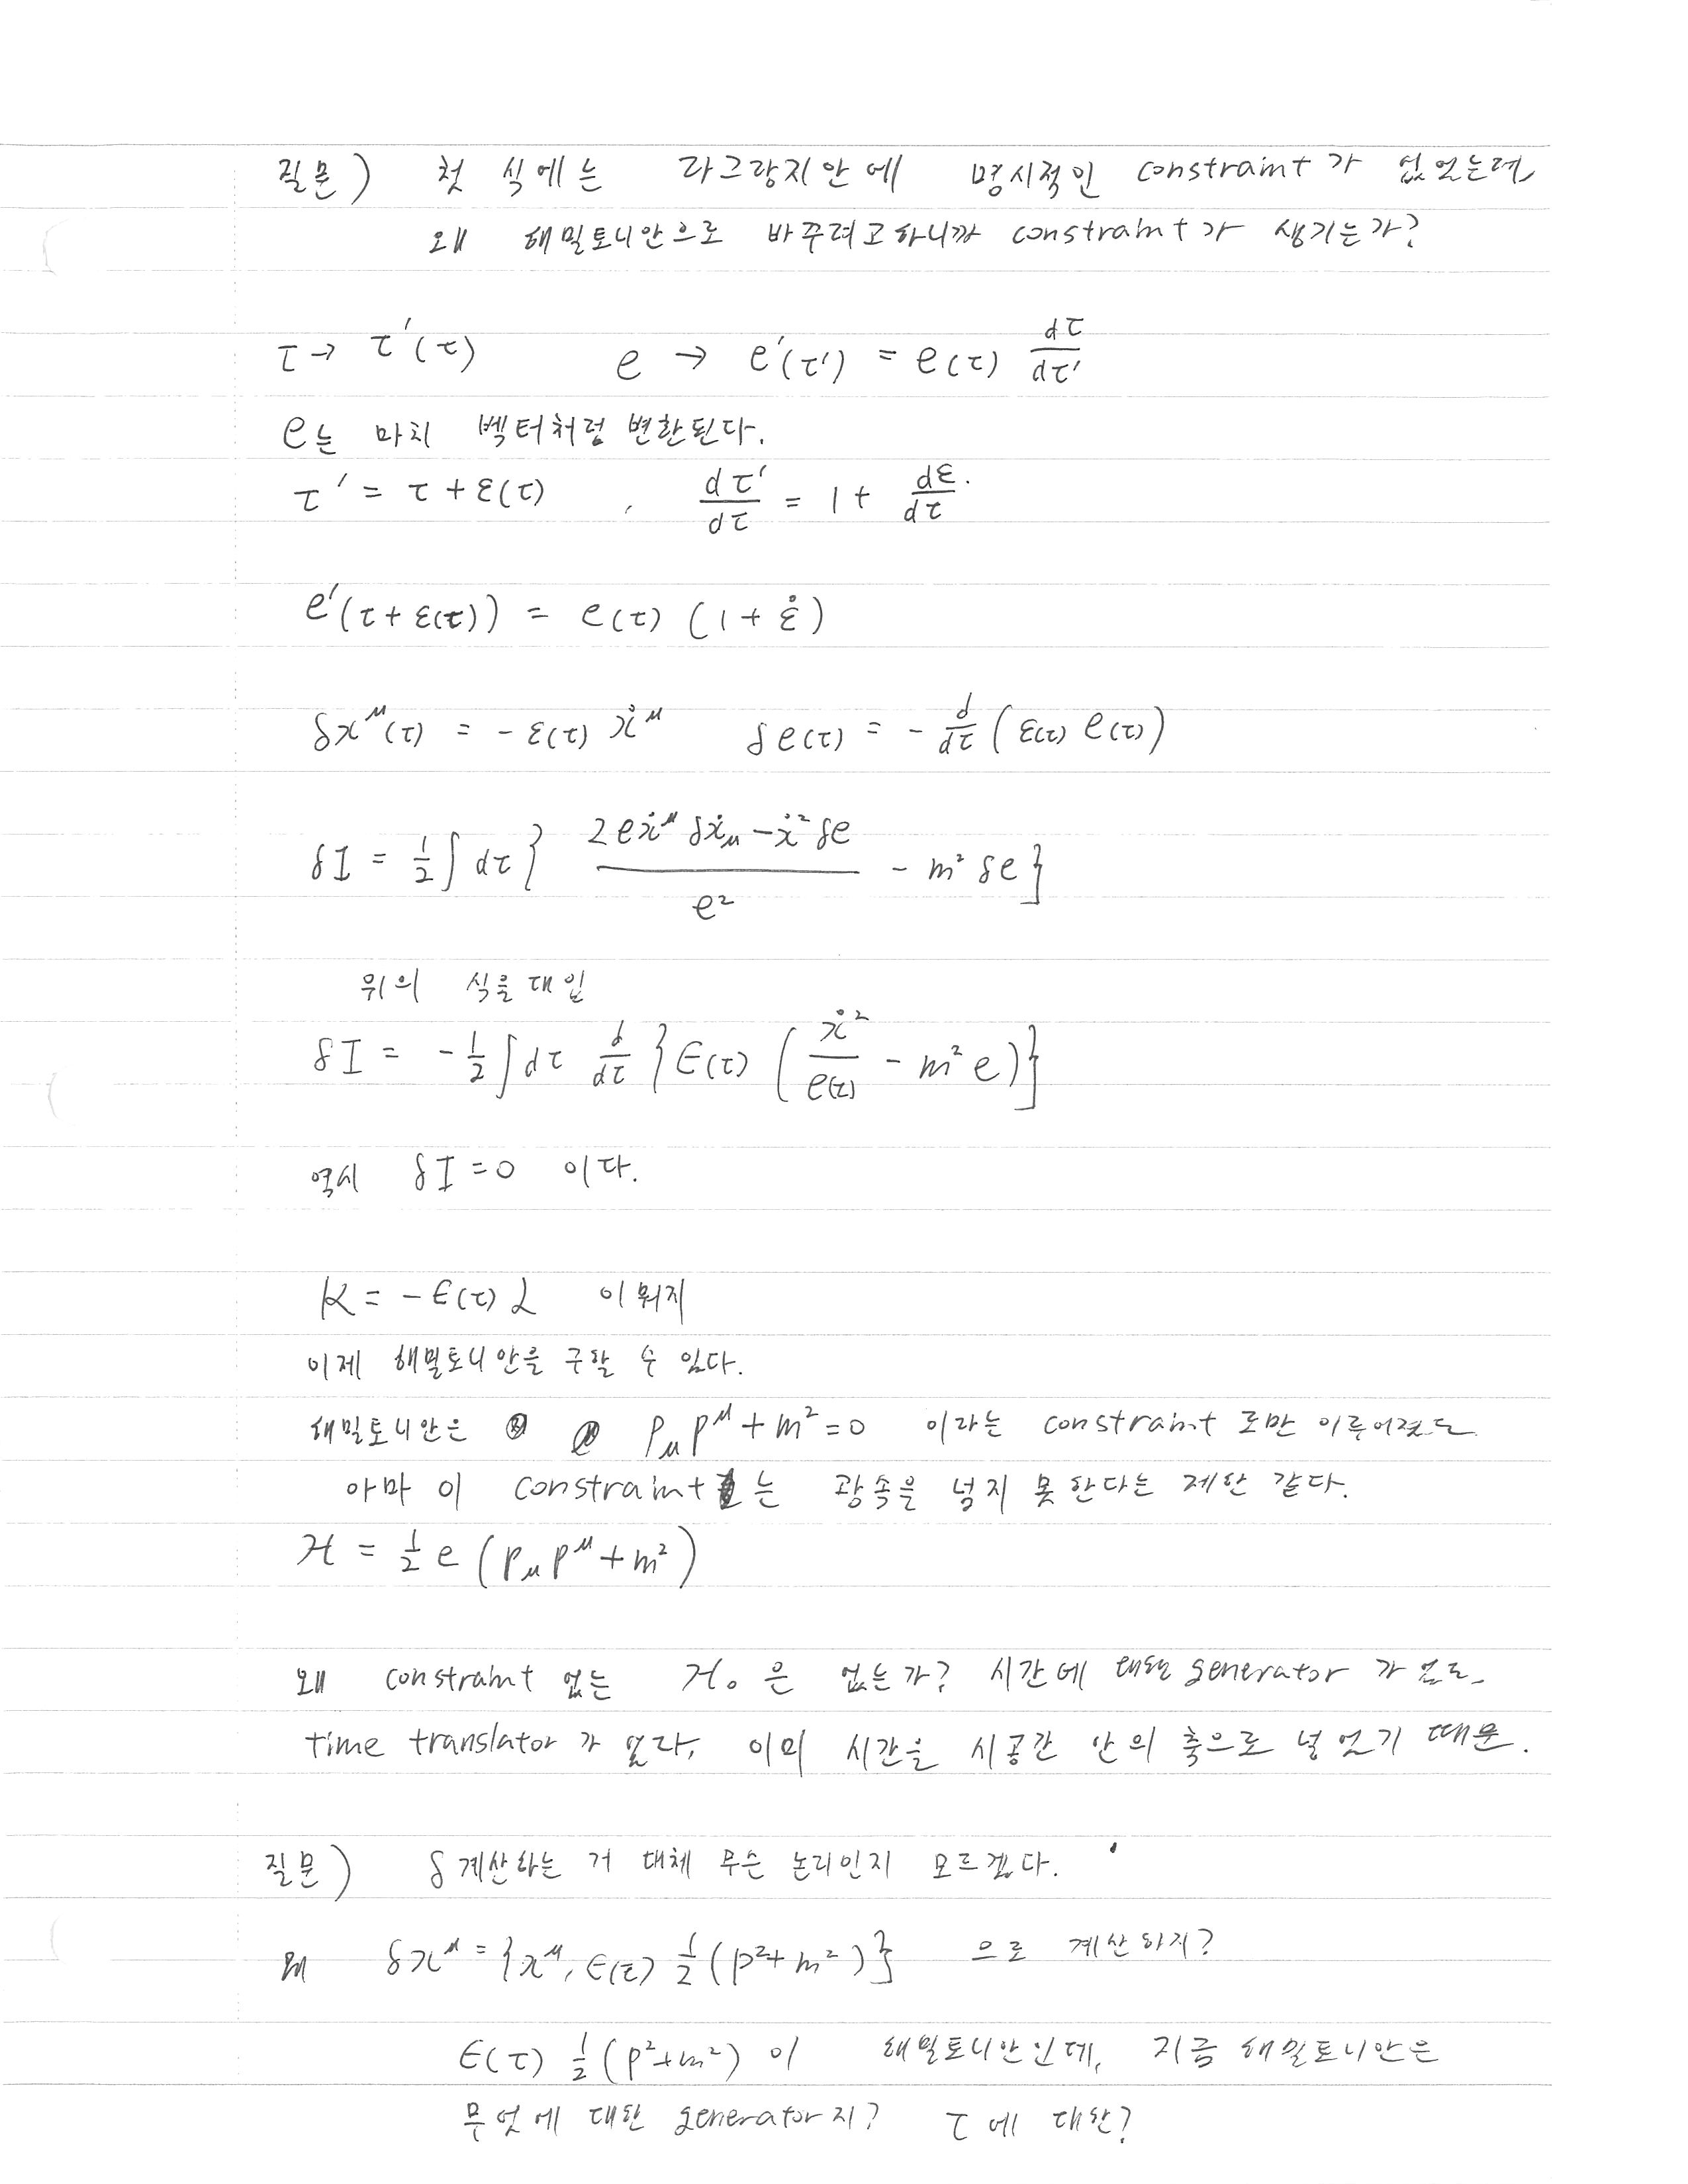 질문) 첫 식에는 라그랑지안에 명시적인 constraint가 없었는데,
왜 해밀토니안으로 바꾸려고하니까 constraint가 생기는가?
τ → τ'(τ)  e → e'(τ') = e(τ) dτ/dτ'
e는 마치 벡터처럼 변환된다.
τ' = τ + ε(τ) , dτ'/dτ = 1 + dε/dτ.
e'(τ + ε(τ)) = e(τ) (1 + ε̇)
δx^μ(τ) = - ε(τ) ẋ^μ  δe(τ) = - d/dτ (ε(τ) e(τ))
δI = 1/2 ∫ dτ { (2eẋ^μ δẋ_μ - ẋ² δe)/e² - m² δe }
위의 식을 대입
δI = - 1/2 ∫ dτ d/dτ { ε(τ) ( ẋ²/e(τ) - m² e ) }
역시 δI = 0 이다.
K = - ε(τ) L 이 뭐지
이제 해밀토니안을 구할 수 있다.
해밀토니안은 p_μ p^μ + m² = 0 이라는 constraint 로만 이루어졌는데
아마 이 constraint는 광속을 넘지 못한다는 제한 같다.
H = 1/2 e (p_μ p^μ + m²)
왜 constraint 없는 H₀은 없는가? 시간에 대한 generator 가 없는
time translator가 없다. 이미 시간을 시공간 안의 축으로 넣었기 때문.
질문) δ계산하는 거 대체 무슨 논리인지 모르겠다.
왜 δx^μ = {x^μ, ε(τ) 1/2 (p² + m²)} 으로 계산하지?
ε(τ) 1/2 (p² + m²) 이 해밀토니안인데, 지금 해밀토니안은
무엇에 대한 generator지? τ에 대한?